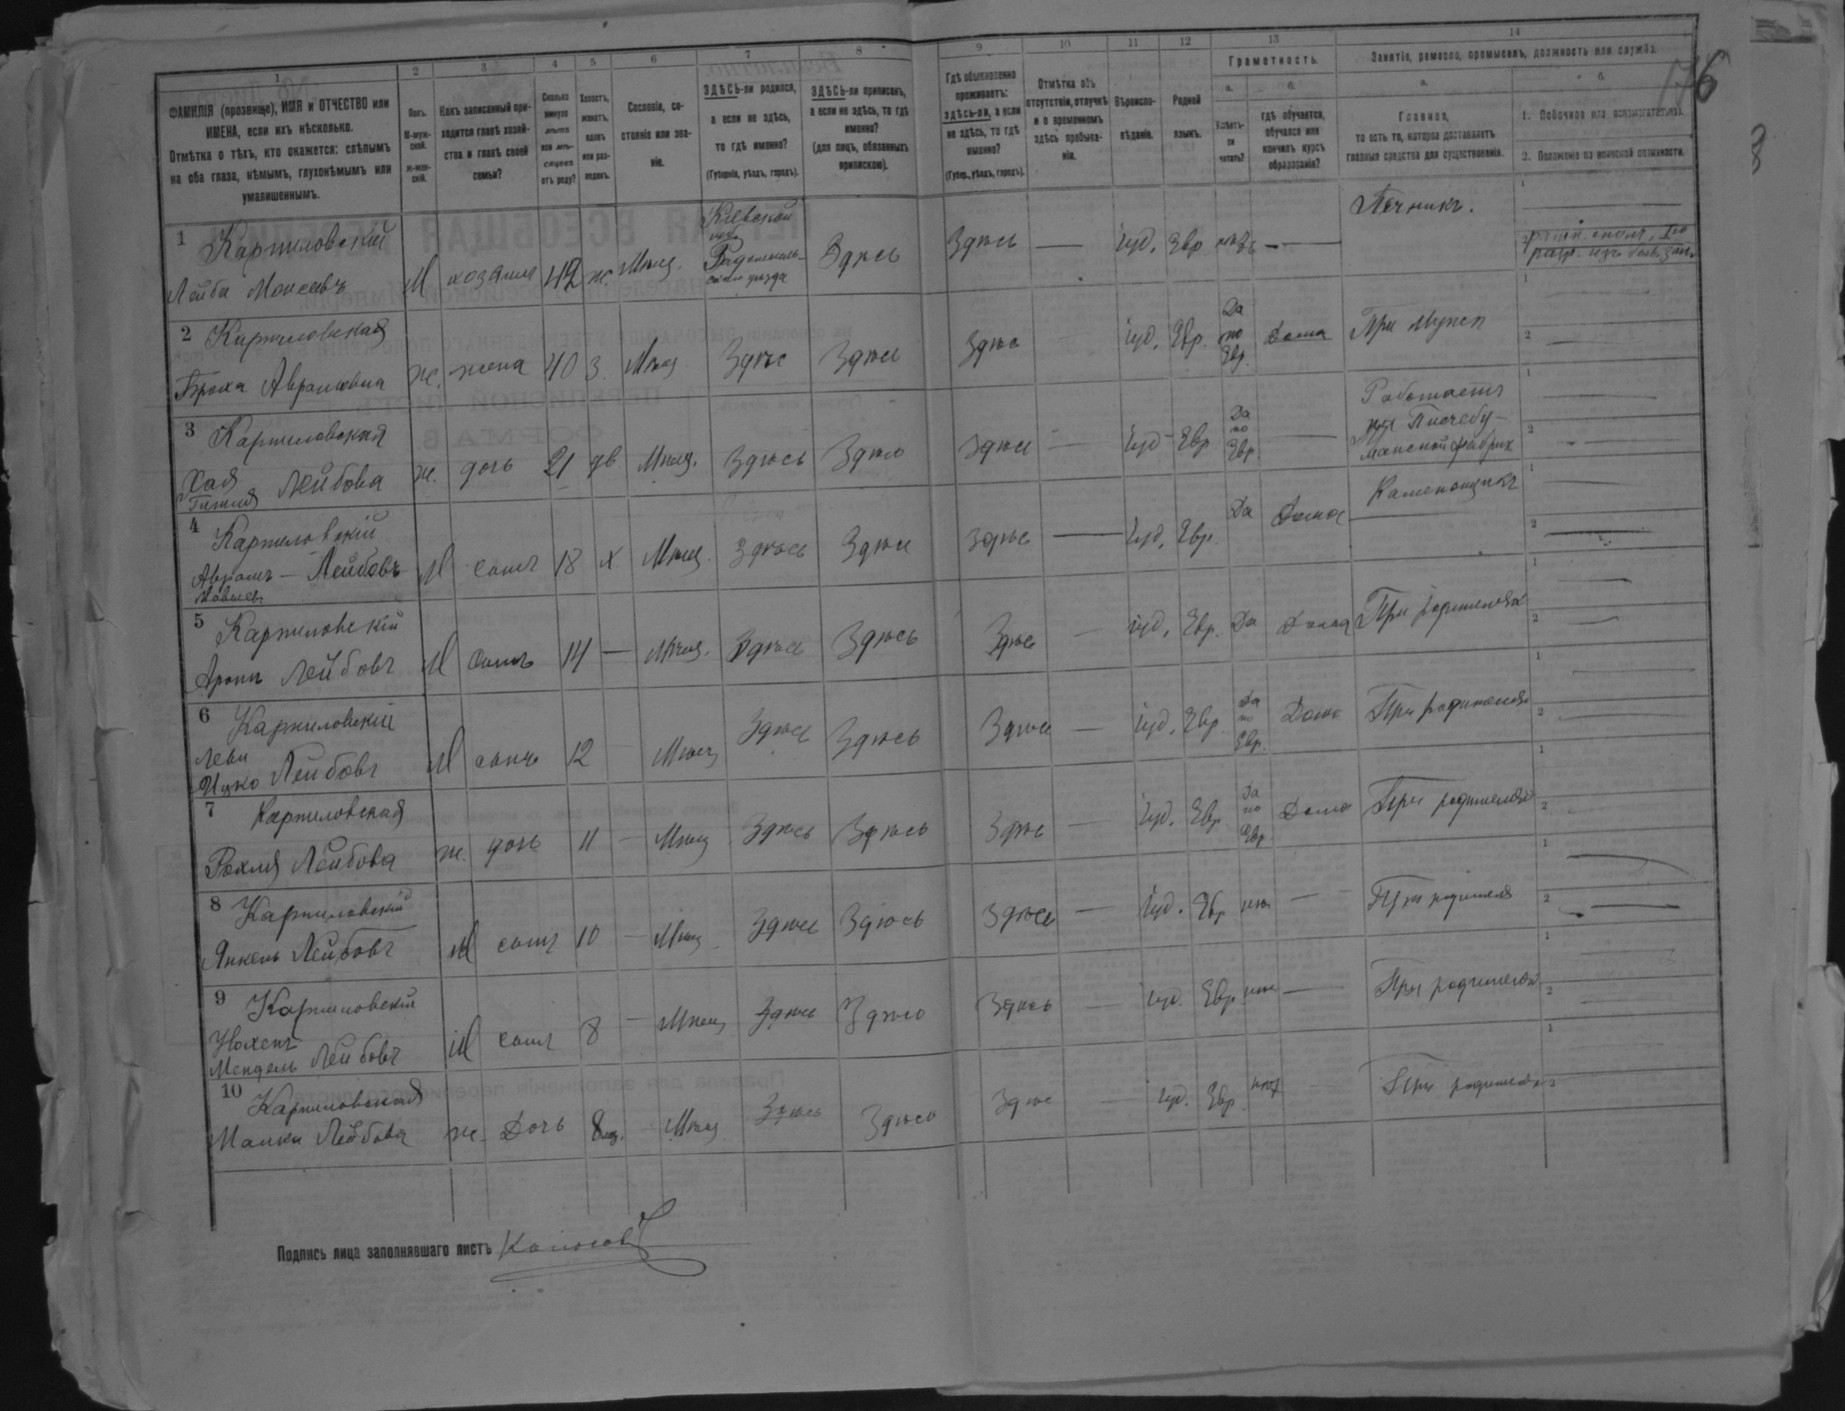 1 2 3 4 5 6 7 8 9 10 11 12 13 14
176
ФАМИЛІЯ (прозвище), ИМЯ и ОТЧЕСТВО или
ИМЕНА, если ихъ нѣсколько.
Отмѣтка о тѣхъ, кто окажется: слѣпымъ
на оба глаза, нѣмымъ, глухонѣмымъ или
умалишеннымъ.
Полъ.
М-муж-
ской.
Ж-жен-
скій.
Какъ записанный при-
ходится главѣ хозяй-
ства и главѣ своей
семьи?
Сколько
минуло
лѣтъ
или мѣ-
сяцевъ
отъ роду?
Холостъ,
женатъ,
вдовъ
или раз-
веденъ.
Сословіе, со-
стояніе или зва-
ніе.
ЗДѢСЬ-ли родился,
а если не здѣсь,
то гдѣ именно?
(Губернія, уѣздъ, городъ).
ЗДѢСЬ-ли приписанъ,
а если не здѣсь, то гдѣ
именно?
(для лицъ, обязанныхъ
припискою).
Гдѣ обыкновенно
проживаетъ:
здѣсь-ли, а если
не здѣсь, то гдѣ
именно?
(Губер., уѣздъ, городъ).
Отмѣтка объ
отсутствіи, отлучкѣ
и о временномъ
здѣсь пребыва-
ніи.
Вѣроиспо-
вѣданіе.
Родной
языкъ.
Грамотность.
а.
Умѣетъ-
ли
читать?
б.
гдѣ обучается,
обучался или
кончилъ курсъ
образованія?
Занятіе, ремесло, промыселъ, должность или служба.
а.
Главное,
то есть то, которое доставляетъ
главныя средства для существованія.
б.
1. Побочное или вспомогательное.
2. Положеніе по воинской повинности.
1 Карпиловскій
Лейба Моисеевъ М хозяинъ 42 ж. Мѣщ. Кіевской
губ.
Радомысль-
скаго уѣзда Здѣсь Здѣсь — Іуд. Евр. нѣтъ — Печникъ.
2 Карпиловская
Броха Аврамовна ж. жена 40 з. Мѣщ. Здѣсь Здѣсь Здѣсь — Іуд. Евр. Да
по
Евр. Дома При мужѣ
3 Карпиловская
Хая Лейбова ж. дочь 21 дѣв Мѣщ. Здѣсь Здѣсь Здѣсь — Іуд Евр Да
по
Евр — Работаетъ
на Писчебу-
мажной фабрикѣ
4 Карпиловскій
Аврамъ — Лейбовъ М сынъ 18 х Мѣщ. Здѣсь Здѣсь Здѣсь — Іуд. Евр. Да Дома Каменощикъ
5 Карпиловскій
Аронъ Лейбовъ М сынъ 14 — Мѣщ. Здѣсь Здѣсь Здѣсь — Іуд. Евр. Да Дома При родителяхъ
6 Карпиловскій
Леви
Ицко Лейбовъ М сынъ 12 Мѣщ Здѣсь Здѣсь Здѣсь — Іуд. Евр. Да
по
Евр. Дома При родителяхъ
7 Карпиловская
Рохля Лейбова ж. дочь 11 — Мѣщ Здѣсь Здѣсь Здѣсь — Іуд. Евр Да
по
Евр Дома При родителяхъ
8 Карпиловскій
Янкель Лейбовъ М сынъ 10 — Мѣщ Здѣсь Здѣсь Здѣсь — Іуд. Евр нѣтъ — При родителяхъ
9 Карпиловскій
Мендель Лейбовъ М сынъ 8 — Мѣщ Здѣсь Здѣсь Здѣсь — Іуд. Евр нѣтъ — При родителяхъ
10 Карпиловская
Малка Лейбова ж. Дочь 8 мѣ. — Мѣщ Здѣсь Здѣсь Здѣсь — Іуд. Евр. нѣтъ При родителяхъ
Подпись лица заполнявшаго листъ